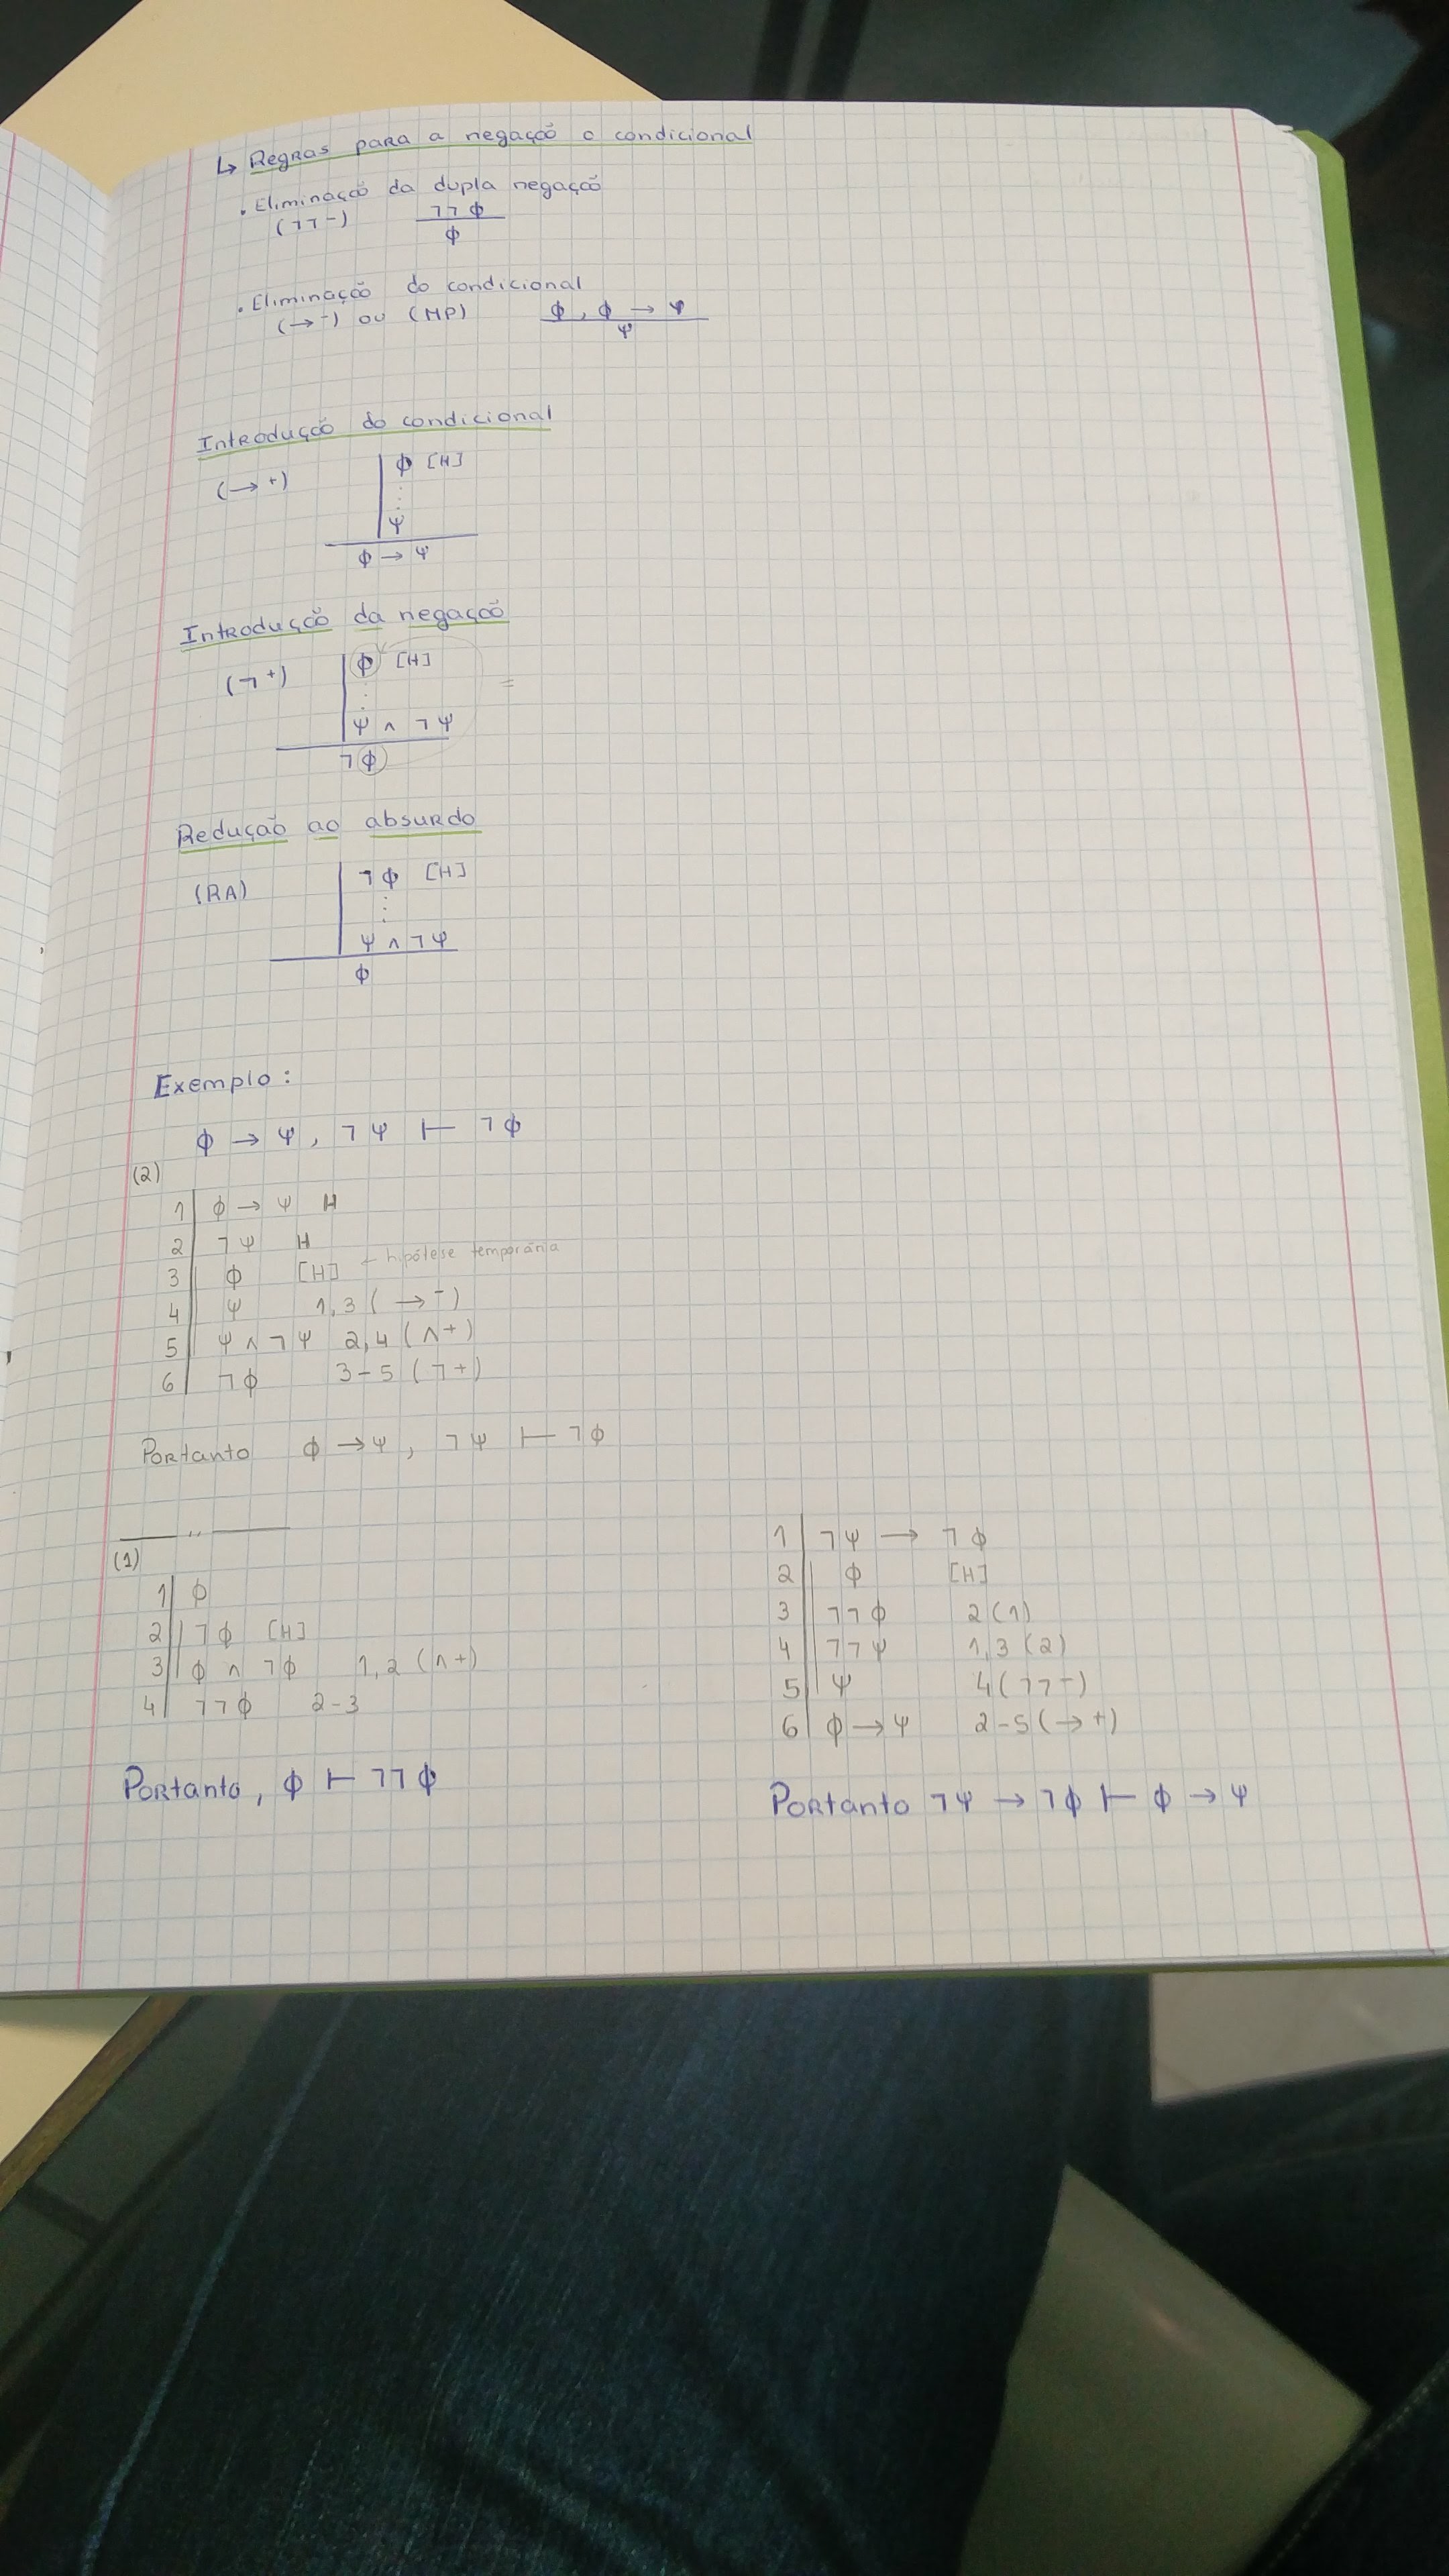 ↳ Regras para a negação e condicional
• Eliminação da dupla negação
(¬¬-) ¬¬ϕ
ϕ
• Eliminação do condicional
(→-) ou (MP) ϕ, ϕ → ψ
ψ
Introdução do condicional
(→+) ϕ [H]
⋮
ψ
ϕ → ψ
Introdução da negação
(¬+) ϕ [H] =
⋮
ψ ∧ ¬ψ
¬ϕ
Redução ao absurdo
(RA) ¬ϕ [H]
⋮
ψ ∧ ¬ψ
ϕ
Exemplo:
ϕ → ψ, ¬ψ ⊢ ¬ϕ
(2)
1 ϕ → ψ H
2 ¬ψ H
3 ϕ [H] ← hipótese temporária
4 ψ 1,3 (→-)
5 ψ ∧ ¬ψ 2,4 (∧+)
6 ¬ϕ 3-5 (¬+)
Portanto ϕ → ψ, ¬ψ ⊢ ¬ϕ
—— " ——
(1)
1 ϕ
2 ¬ϕ [H]
3 ϕ ∧ ¬ϕ 1,2 (∧+)
4 ¬¬ϕ 2-3
Portanto, ϕ ⊢ ¬¬ϕ
1 ¬ψ → ¬ϕ
2 ϕ [H]
3 ¬¬ϕ 2(1)
4 ¬¬ψ 1,3 (2)
5 ψ 4(¬¬-)
6 ϕ → ψ 2-5(→+)
Portanto ¬ψ → ¬ϕ ⊢ ϕ → ψ